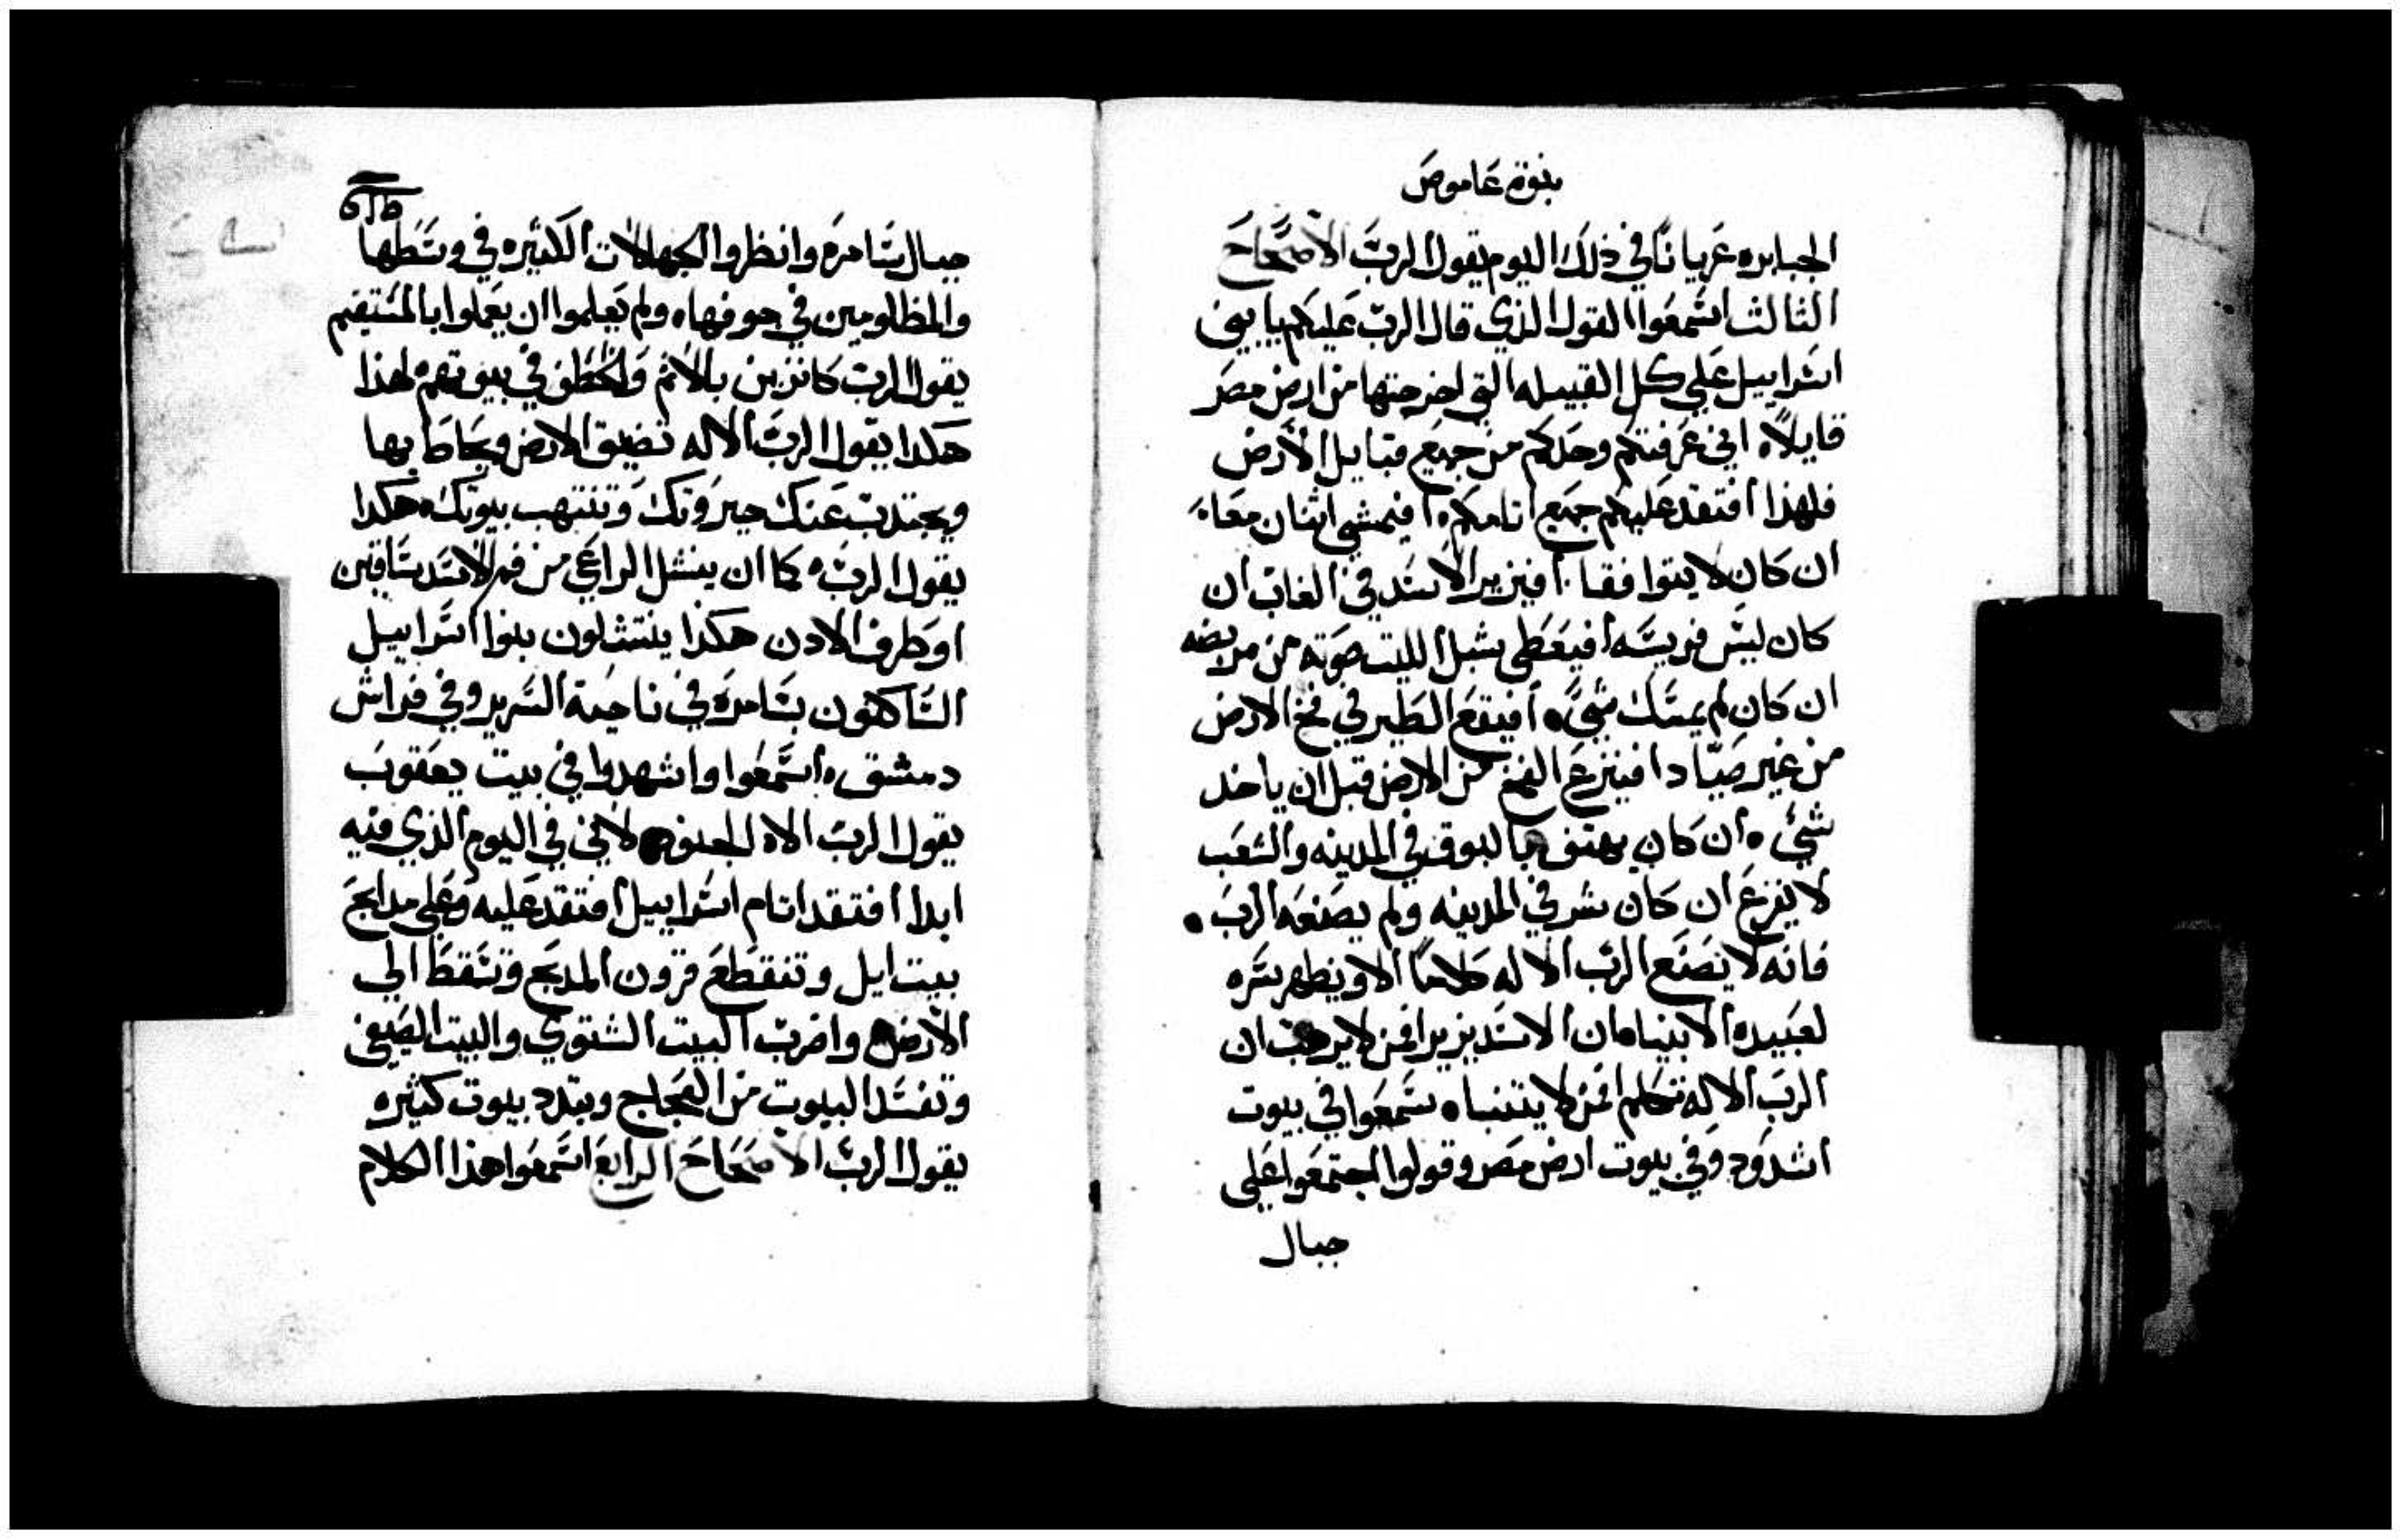 بنوة عاموص
الجبابره عَريانًا في ذلك اليوم يقول الربّ الاصحَاحَ
الثالث اسَّمعَوا القول الذي قال الربّ عَليكم يا بيني
اسَّراييل عَلي كل القبيله التي اخرجتها من ارض مصَر
قايلاً اني عَرفتكم وحدكم من جميع قبايل الأرض
فلهذا افتقد عَليكم جميع اتامكم، افيمشي اثنان معَاً
ان كان لا يتوافقا. أفيزير الاسَّد في الغاب ان
كان ليسَّ فريسَّه أفيعَطي شبل الليت صَوته من مربضه
ان كان لم يمسَّك شيً، أفيقع الطَير في فخ الارض
من غير صَيّاد افينزع الفخ من الارض قبل ان ياخد
شيً، ان كان يهتف بالبوق في المدينه والشعَب
لا يفزع ان كان شر في المدينه ولم يصَنعَه الربّ.
فانه لا يصَنَع الربّ الاله كلامًا الا ويظهر سَّره
لعَبيده الابنيا، ان الاسَّد يزير افمن لا يرهب ان
الربّ الاله تتكلم افمن لا يتنبا، سَّمعَوا في بيوت
اشدَود وفي بيوت ارض مصَر وقولوا اجتمعَوا عَلي
جبال
جبال سَّامرَه وانظروا الجهالات الكثيره في وسَّطَها
والمظلومين في جوفها، ولم يعَلموا ان يعَملوا بالمسَّتقيم
يقول الربّ كانزين بالأثم والخَطَف في بيوتهم، لهذا
هكدا يقول الربّ الاله تضيق الارض ويحَاطَ بها
ويجتدبّ عَنك جبرَوتك وتنتهب بيوتك، هكدا
يقول الربّ، كما ان ينشل الراعَي من فم الاسَّد سَّاقين
اوطَرف الادن هكذا ينتشلون بنوا اسَّراييل
السَّاكنون بسَّامرَه في ناحية السَّرير وفي فراش
دمشق، اسَّمعَوا واشهدوا في بيت يعَقوبَ
يقول الربّ الاه الجنود لاني في اليوم الذي فيه
ابدا افتقد اتام اسَّراييل افتقد عَليه وعَلي مدابحَ
بيت ايل وتنقطَعَ قرون المدبحَ وتسَّقطَ الي
الأرض واضربّ البيت الشتوي والبيت الصَيفي
وتفسَّد البيوت من العَاج ويتبدد بيوت كثيره
يقول الربّ الاصحَاحَ الرابعَ اسَّمعَوا هذا الكلام